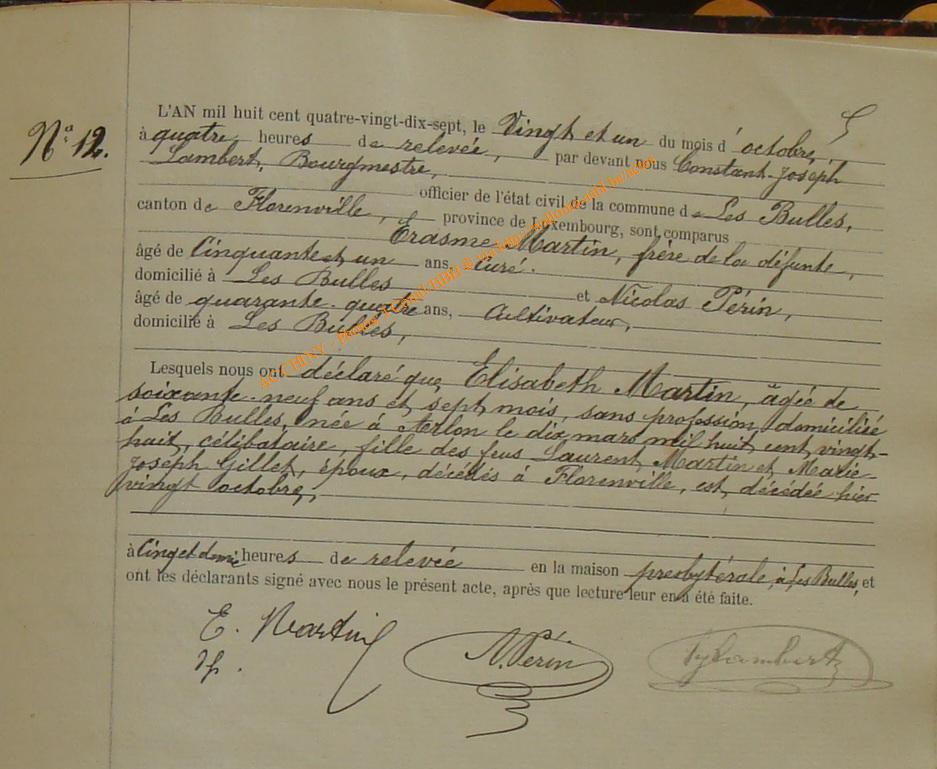 Nº 12.
L'AN mil huit cent quatre-vingt-dix-sept, le Vingt et un du mois d'octobre,
à quatre heures de relevée, par devant nous Constant-Joseph
Lambert, Bourgmestre,
officier de l'état civil de la commune de Les Bulles,
canton de Florenville, province de Luxembourg, sont comparus
Erasme Martin, frère de la défunte,
âgé de Cinquante et un ans, Curé.
domicilié à Les Bulles et Nicolas Périn,
âgé de quarante-quatre ans, Cultivateur,
domicilié à Les Bulles,
Lesquels nous ont déclaré que Elisabeth Martin, âgée de
soixante-neuf ans et sept mois, sans profession, domiciliée
à Les Bulles, née à Arlon le dix mars mil huit cent vingt-
huit, célibataire, fille des feus Laurent Martin et Marie-
Joseph Gillet, époux, décédés à Florenville, est décédée hier
vingt octobre,
à Cinq et demie heures de relevée en la maison presbytérale, à Les Bulles, et
ont les déclarants signé avec nous le présent acte, après que lecture leur en a été faite.
E. Martin
N. Périn
Lambert